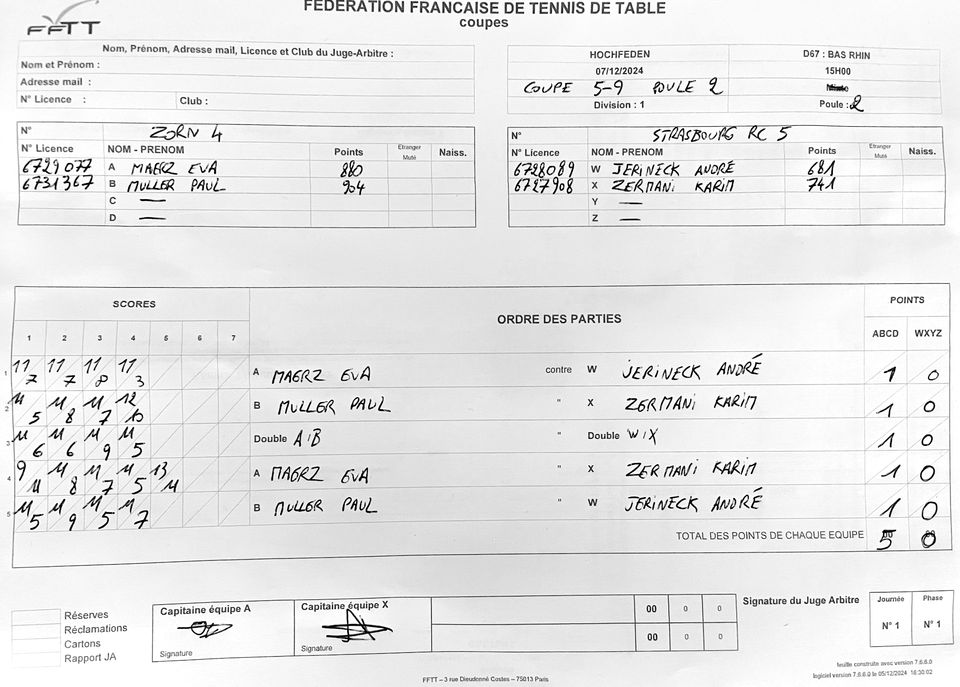 FEDERATION FRANCAISE DE TENNIS DE TABLE
coupes
FFTT
Nom, Prénom, Adresse mail, Licence et Club du Juge-Arbitre :
Nom et Prénom :
Adresse mail :
N° Licence : Club :
HOCHFEDEN D67 : BAS RHIN
07/12/2024 15H00
COUPE 5-9 POULE 2
Division : 1 Poule : 2
N° ZORN 4
N° Licence NOM - PRENOM Points Etranger Muté Naiss.
6729077 A MAERZ EVA 880
6731367 B MULLER PAUL 904
C —
D —
N° STRASBOURG RC 5
N° Licence NOM - PRENOM Points Etranger Muté Naiss.
6728089 W JERINECK ANDRÉ 681
6727908 X ZERMANI KARIM 741
Y —
Z —
SCORES ORDRE DES PARTIES POINTS
1 2 3 4 5 6 7 ABCD WXYZ
1 11/7 11/7 11/8 11/3 A MAERZ EVA contre W JERINECK ANDRÉ 1 0
2 11/5 11/8 11/7 12/10 B MULLER PAUL " X ZERMANI KARIM 1 0
3 11/6 11/6 11/9 11/5 Double A/B " Double W/X 1 0
4 9/11 11/8 11/7 11/5 13/11 A MAERZ EVA " X ZERMANI KARIM 1 0
5 11/5 11/9 11/5 11/7 B MULLER PAUL " W JERINECK ANDRÉ 1 0
TOTAL DES POINTS DE CHAQUE EQUIPE 5 0
Réserves
Réclamations
Cartons
Rapport JA
Capitaine équipe A
Signature
Capitaine équipe X
Signature
00 0 0
00 0 0
Signature du Juge Arbitre
Journée Phase
N° 1 N° 1
feuille construite avec version 7.6.6.0
logiciel version 7.6.6.0 le 05/12/2024 16:30:02
FFTT – 3 rue Dieudonné Costes – 75013 Paris